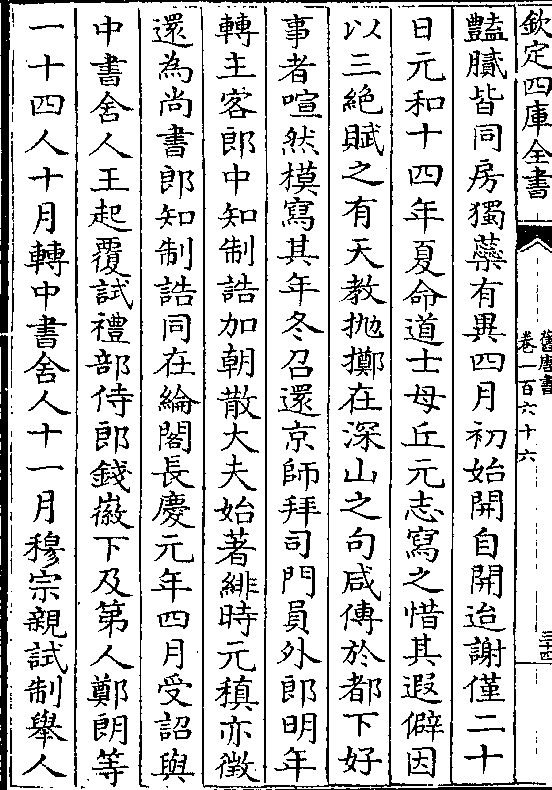 欽定四庫全書
舊唐書
卷一百六十六
三十四
豔膩皆同房獨蘂有異四月初始開自開迨謝僅二十
日元和十四年夏命道士毋丘元志寫之惜其遐僻因
以三絶賦之有天教抛擲在深山之句咸傳於都下好
事者喧然模寫其年冬召還京師拜司門員外郎明年
轉主客郎中知制誥加朝散大夫始著緋時元稹亦徴
還為尚書郎知制誥同在綸閣長慶元年四月受詔與
中書舍人王起覆試禮部侍郎錢徽下及第人鄭朗等
一十四人十月轉中書舍人十一月穆宗親試制舉人